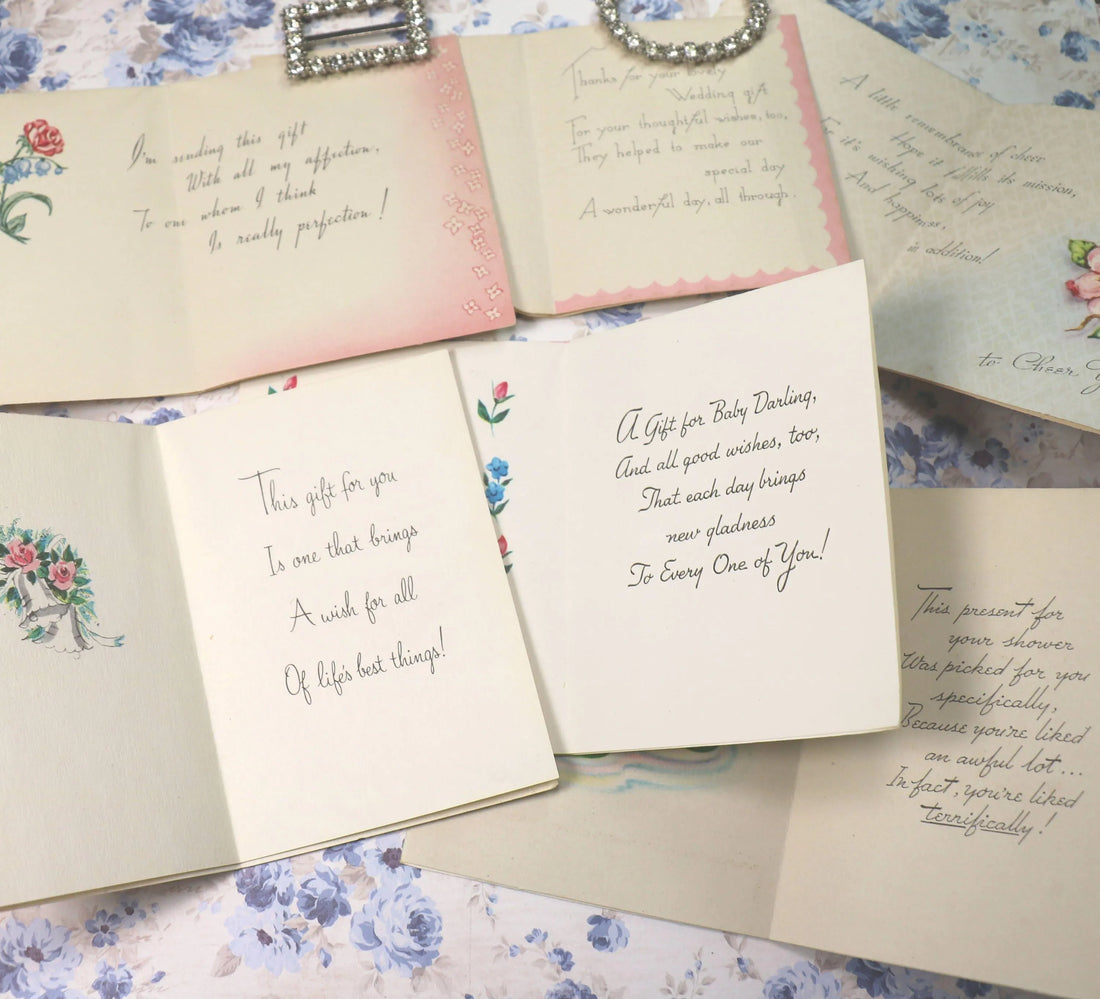 I'm sending this gift
With all my affection,
To one whom I think
Is really perfection!
Thanks for your lovely
Wedding gift
For your thoughtful wishes, too,
They helped to make our
special day
A wonderful day, all through.
A little remembrance of cheer
Hope it fulfills its mission,
For it's wishing lots of joy
And happiness,
in addition!
to Cheer
This gift for you
Is one that brings
A wish for all
Of life's best things!
A Gift for Baby Darling,
And all good wishes, too,
That each day brings
new gladness
To Every One of You!
This present for
your shower
Was picked for you
specifically,
Because you're liked
an awful lot...
In fact, you're liked
terrifically!